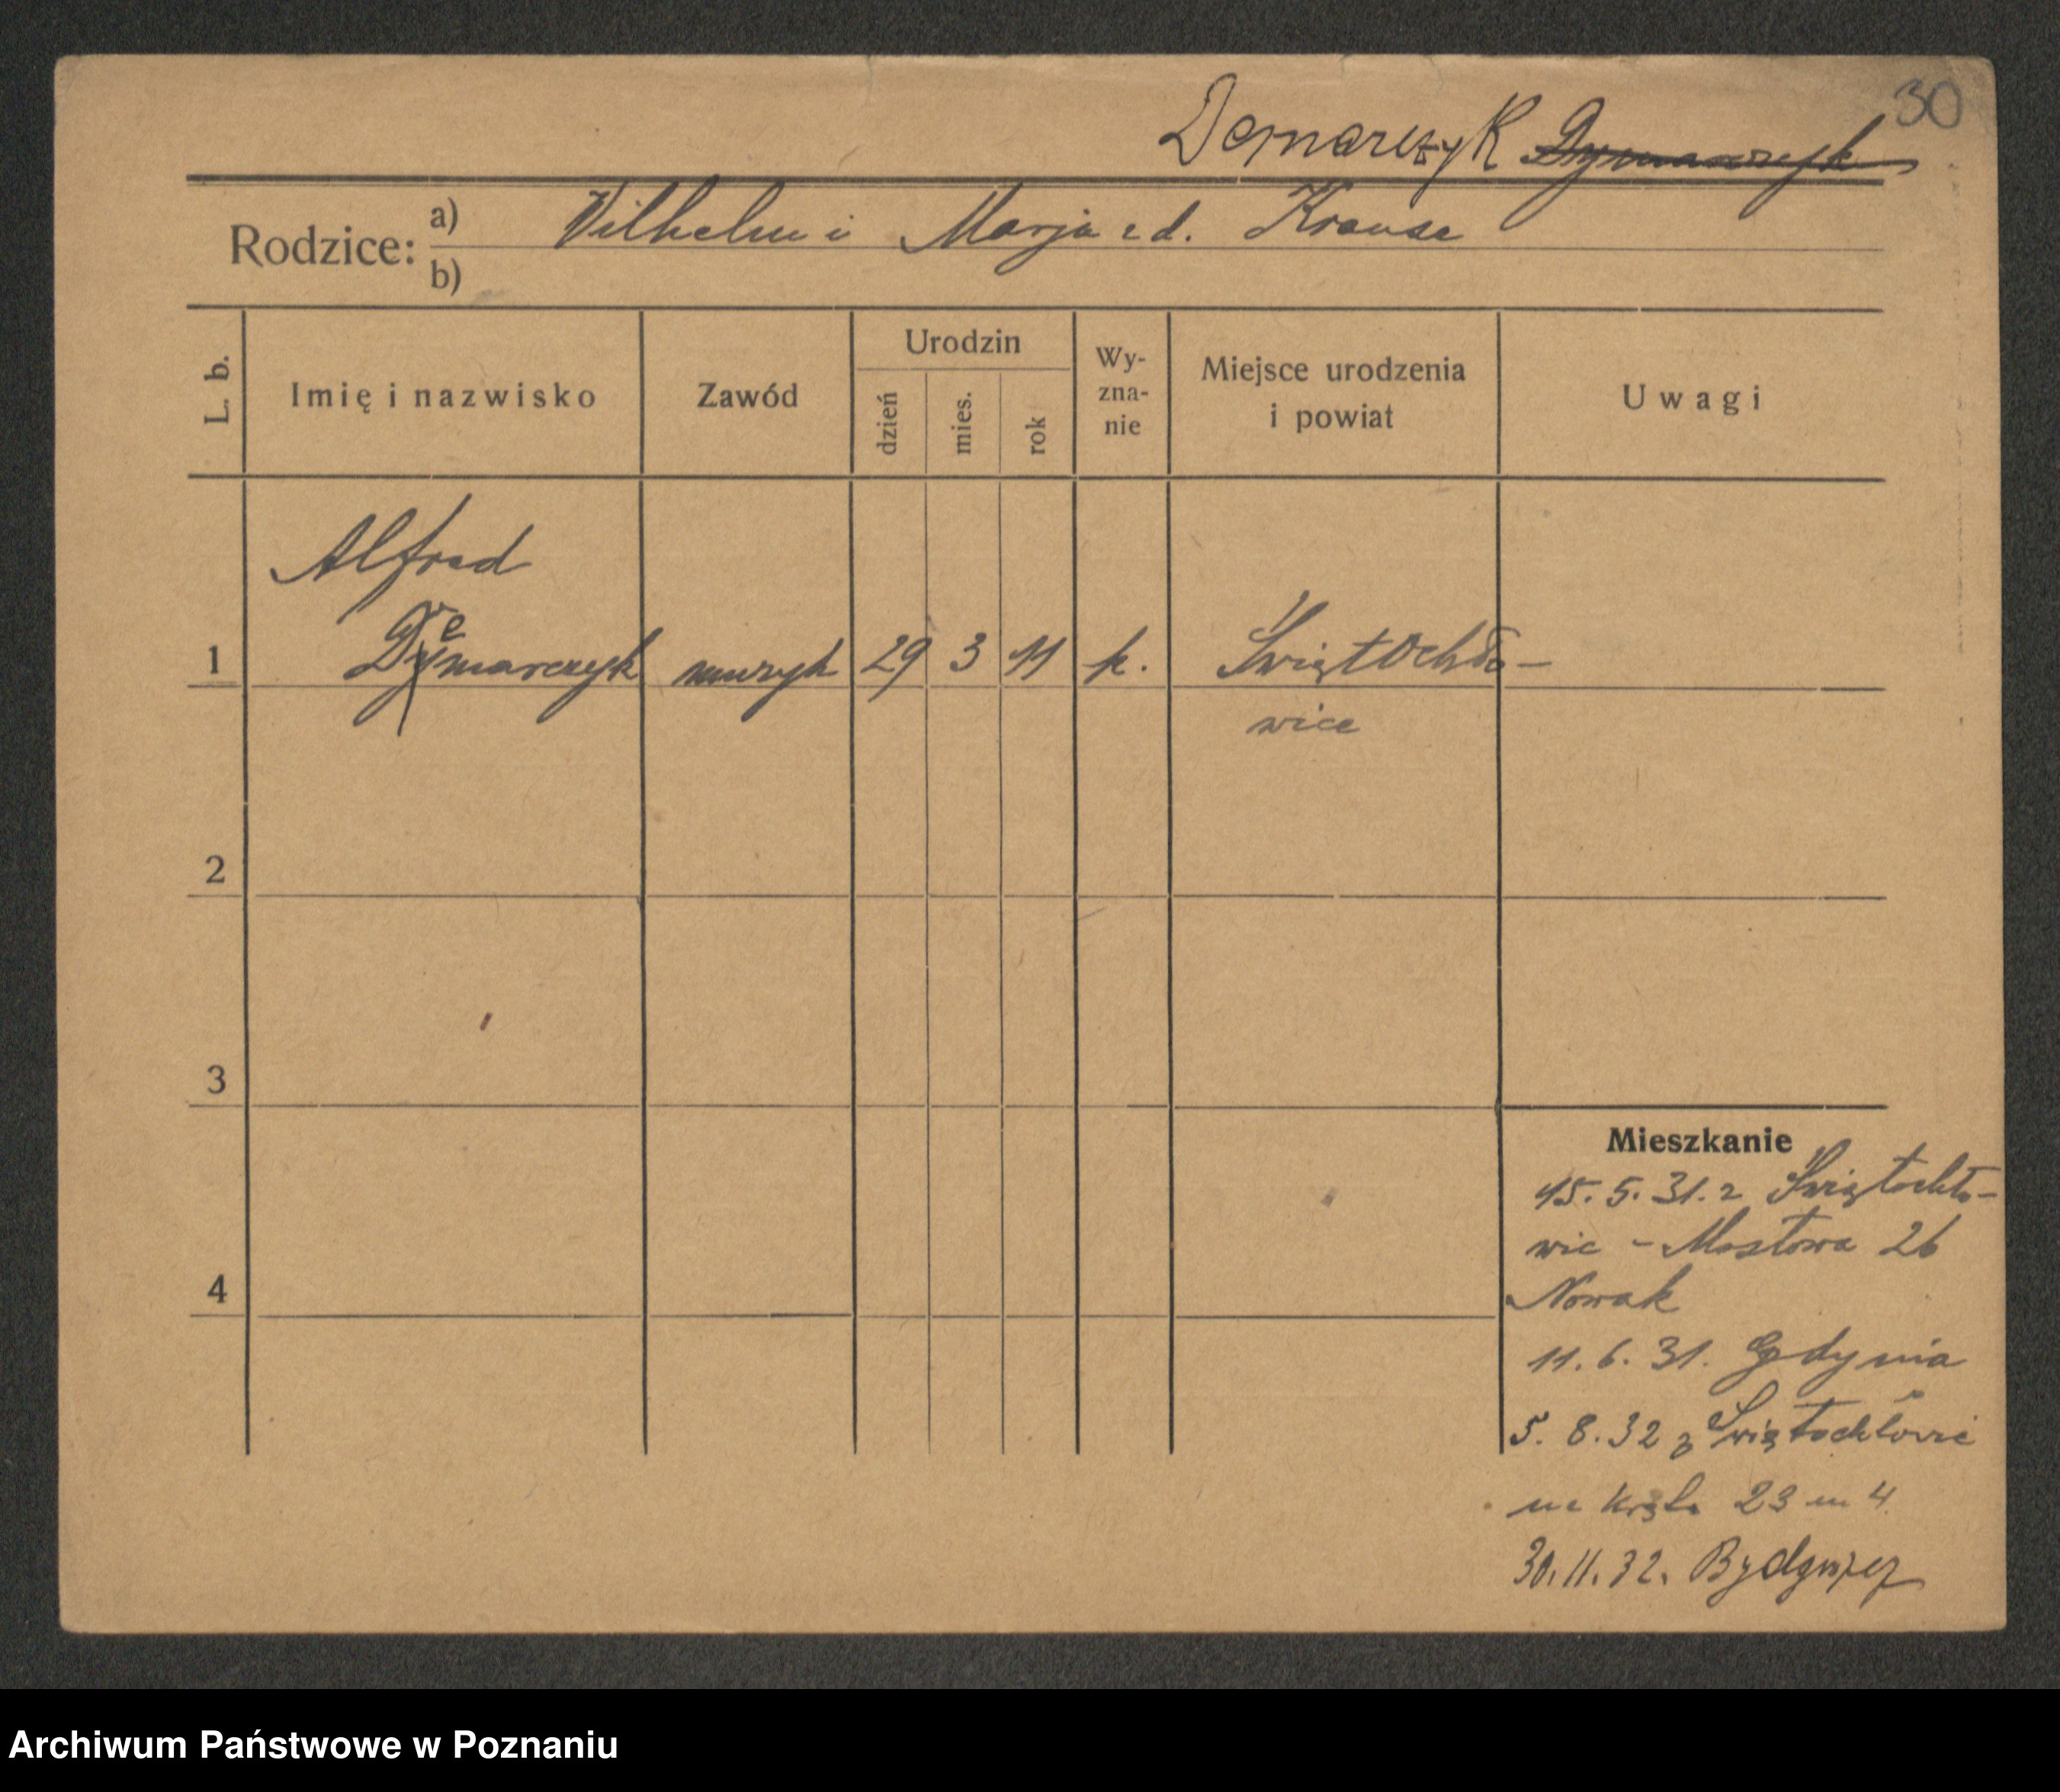 30
Demarczyk Dymarczyk
Rodzice: a) Wilhelm i Marja z d. Krause
b)
L. b. Imię i nazwisko Zawód Urodzin dzień mies. rok Wy-zna-nie Miejsce urodzenia i powiat Uwagi
Alfred
1 Dymarczyk e muzyk 29 3 11 k. Świętochło-
wice
2
3
Mieszkanie
15. 5. 31. z Świętochło-
wic - Mostowa 26
4 Nowak
11. 6. 31. Gdynia
5. 8. 32 z Świętochłowic
23 m 4
30. 11. 32. Bydgoszcz
Archiwum Państwowe w Poznaniu